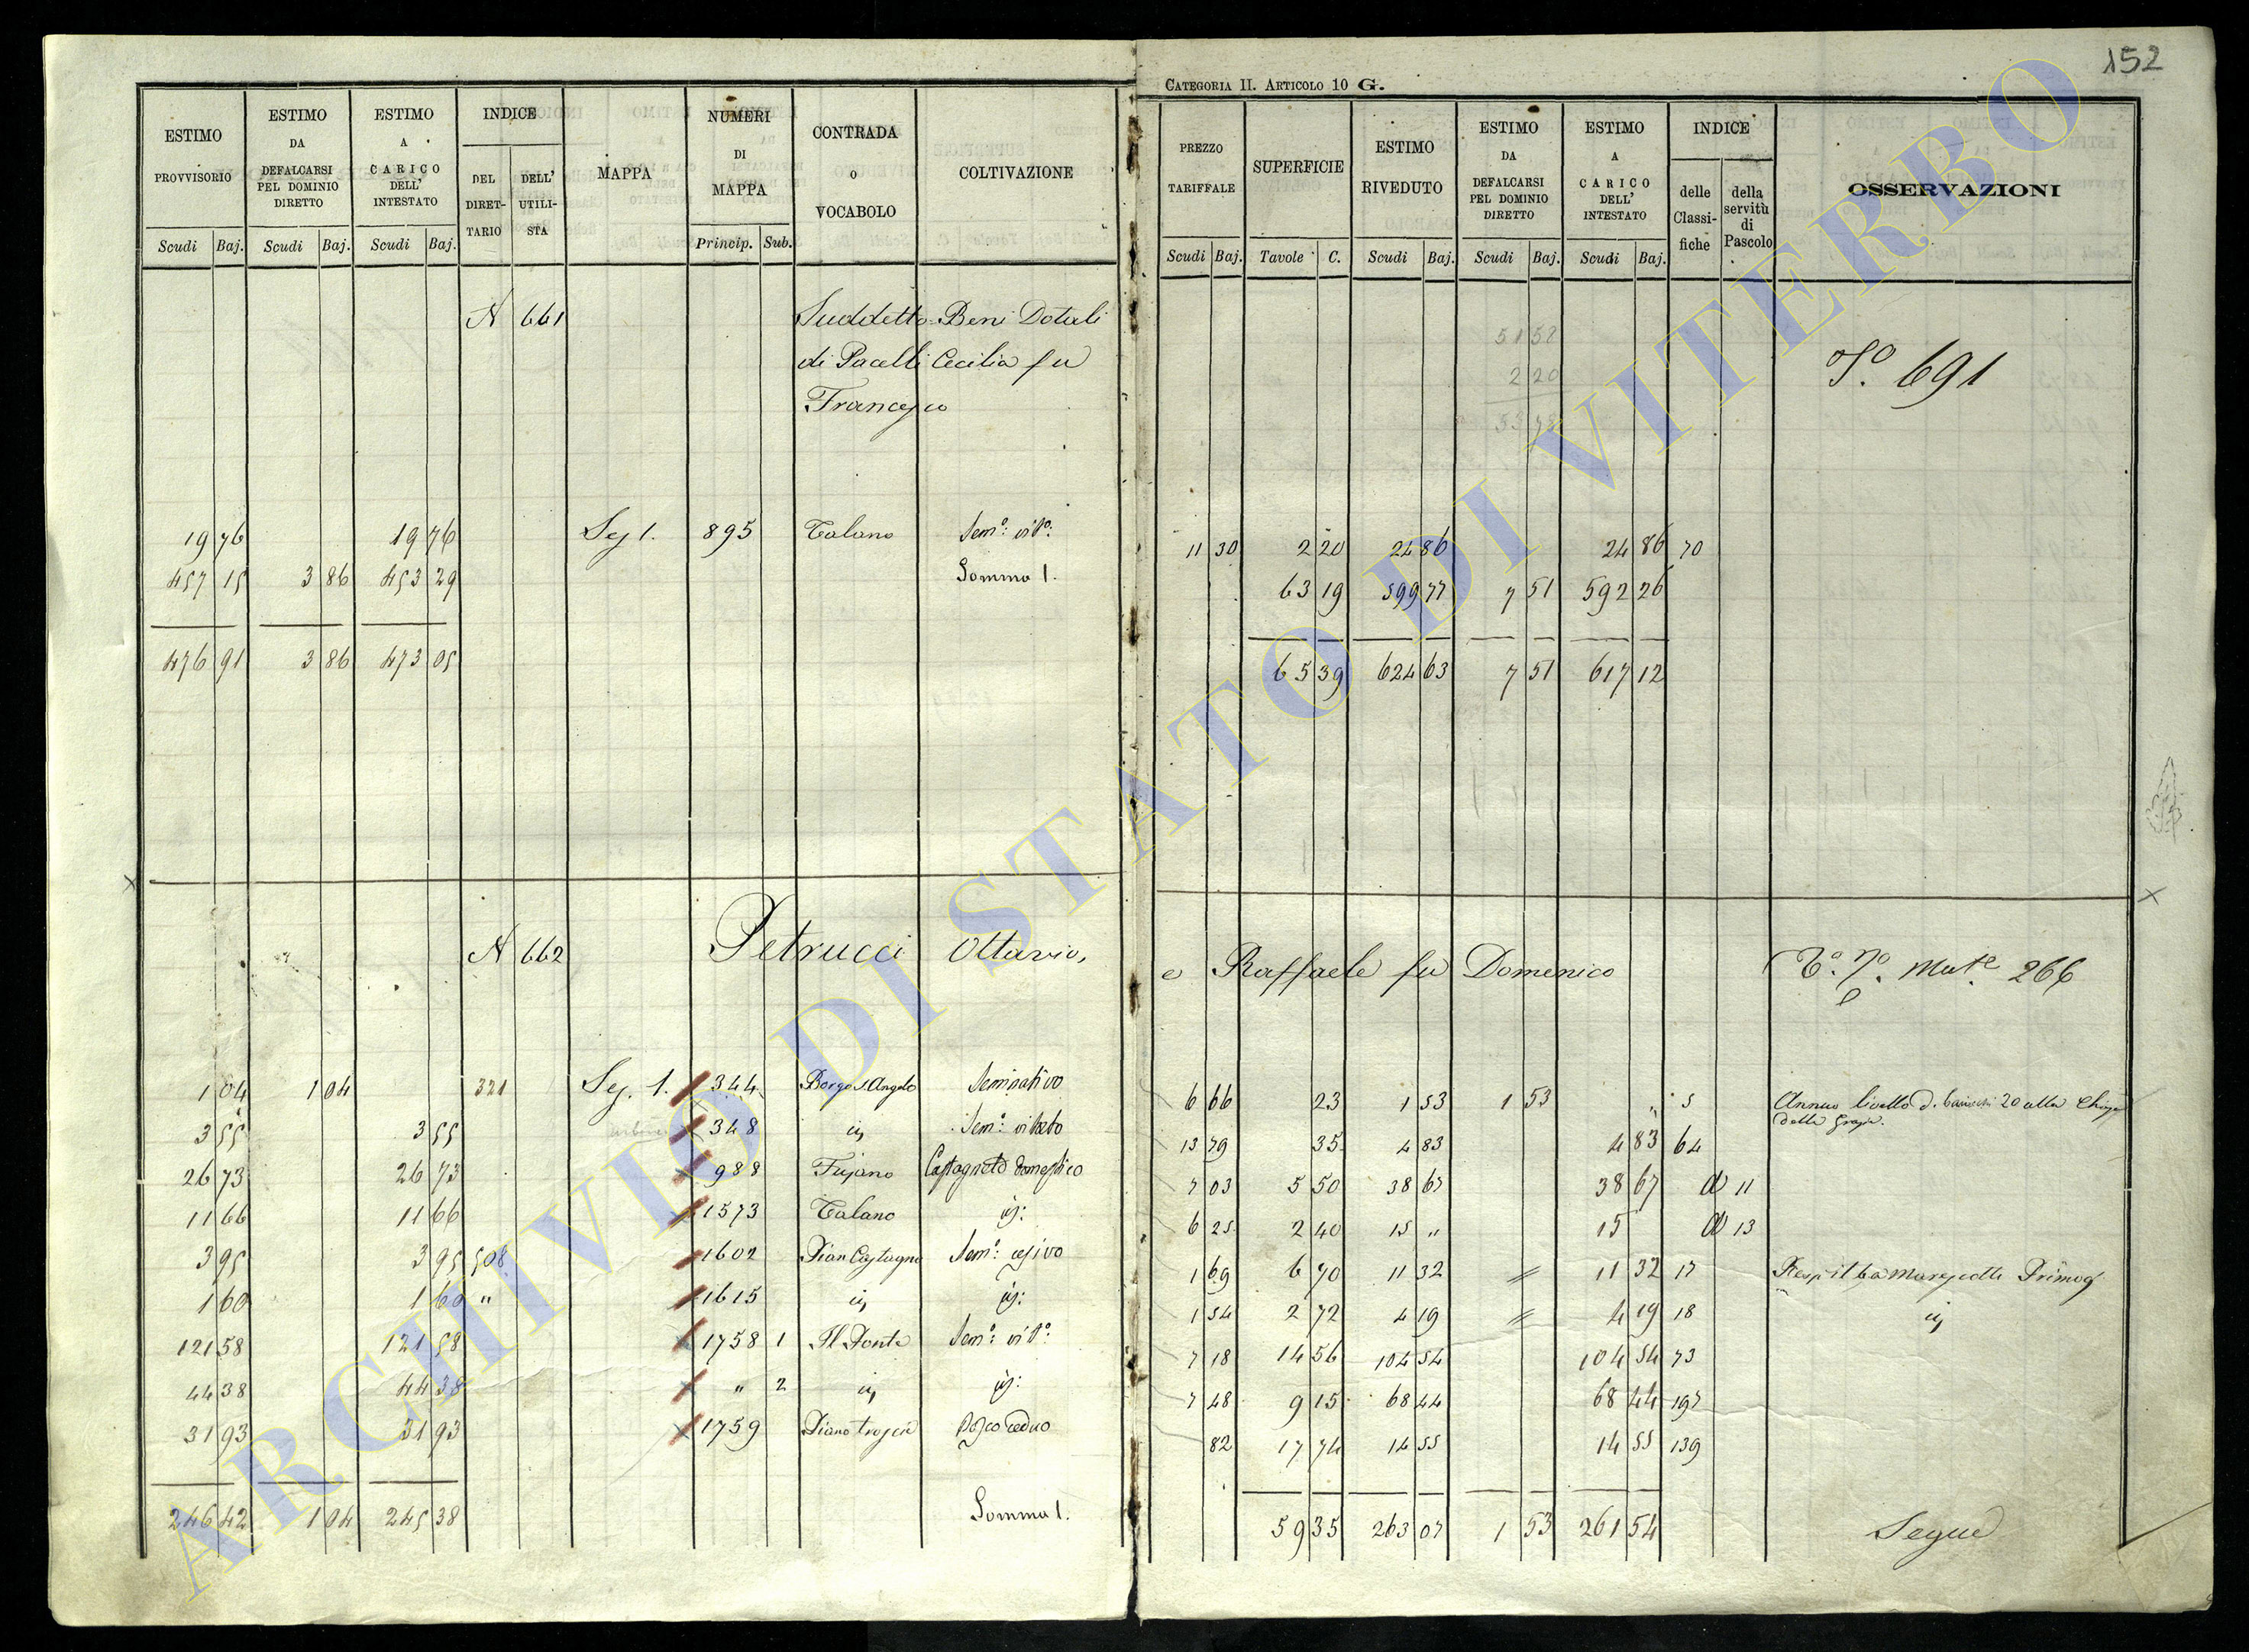 152
CATEGORIA II. ARTICOLO 10 G.
ESTIMO PROVVISORIO Scudi Baj.
ESTIMO DA DEFALCARSI PEL DOMINIO DIRETTO Scudi Baj.
ESTIMO A CARICO DELL' INTESTATO Scudi Baj.
INDICE DEL DIRETTARIO DELL' UTILISTA
MAPPA
NUMERI DI MAPPA Princip. Sub.
CONTRADA O VOCABOLO
COLTIVAZIONE
PREZZO TARIFFALE Scudi Baj.
SUPERFICIE Tavole C.
ESTIMO RIVEDUTO Scudi Baj.
ESTIMO DA DEFALCARSI PEL DOMINIO DIRETTO Scudi Baj.
ESTIMO A CARICO DELL' INTESTATO Scudi Baj.
INDICE delle Classifiche della servitù di Pascolo
OSSERVAZIONI
N 661 Suddetto Beni Dotali
di Pacelli Cecilia fu
Francesco
51 58
2 20
53 78
691
19 76 19 76 Sez 1. 895 Talano Sem.o vit.o 11 30 2 20 24 86 24 86 70
457 15 3 86 453 29 Somma 1. 63 19 599 77 7 51 592 26
476 91 3 86 473 05 65 39 624 63 7 51 617 12
N 662 Petrucci Ottavio, e Raffaele fu Domenico Mat.e 266
1 04 1 04 321 Sez. 1. 344 Borgo S. Angelo Seminativo 6 66 23 1 53 1 53 " 5 Annuo livello di 20 alla Chiesa
delle Grazie.
3 55 3 55 348 id Sem.o vitato 13 79 35 4 83 4 83 64
26 73 26 73 988 Fujano Castagneto domestico 7 03 5 50 38 67 38 67 11
11 66 11 66 1573 Talano id: 6 25 2 40 15 " 15 13
3 95 3 95 508 1602 Pian Castagno Sem.o cesivo 1 69 6 70 11 32 11 32 17
1 60 1 60 " 1615 id id: 1 54 2 72 4 19 4 19 18 id
121 58 121 58 1758 1 Il Ponte Sem.o vit.o 7 18 14 56 104 54 104 54 73
44 38 44 38 " 2 id id: 7 48 9 15 68 44 68 44 197
31 93 31 93 1759 Bosco ceduo 82 17 74 14 55 14 55 139
246 42 1 04 245 38 Somma 1. 59 35 263 07 1 53 261 54 Segue
ARCHIVIO DI STATO DI VITERBO